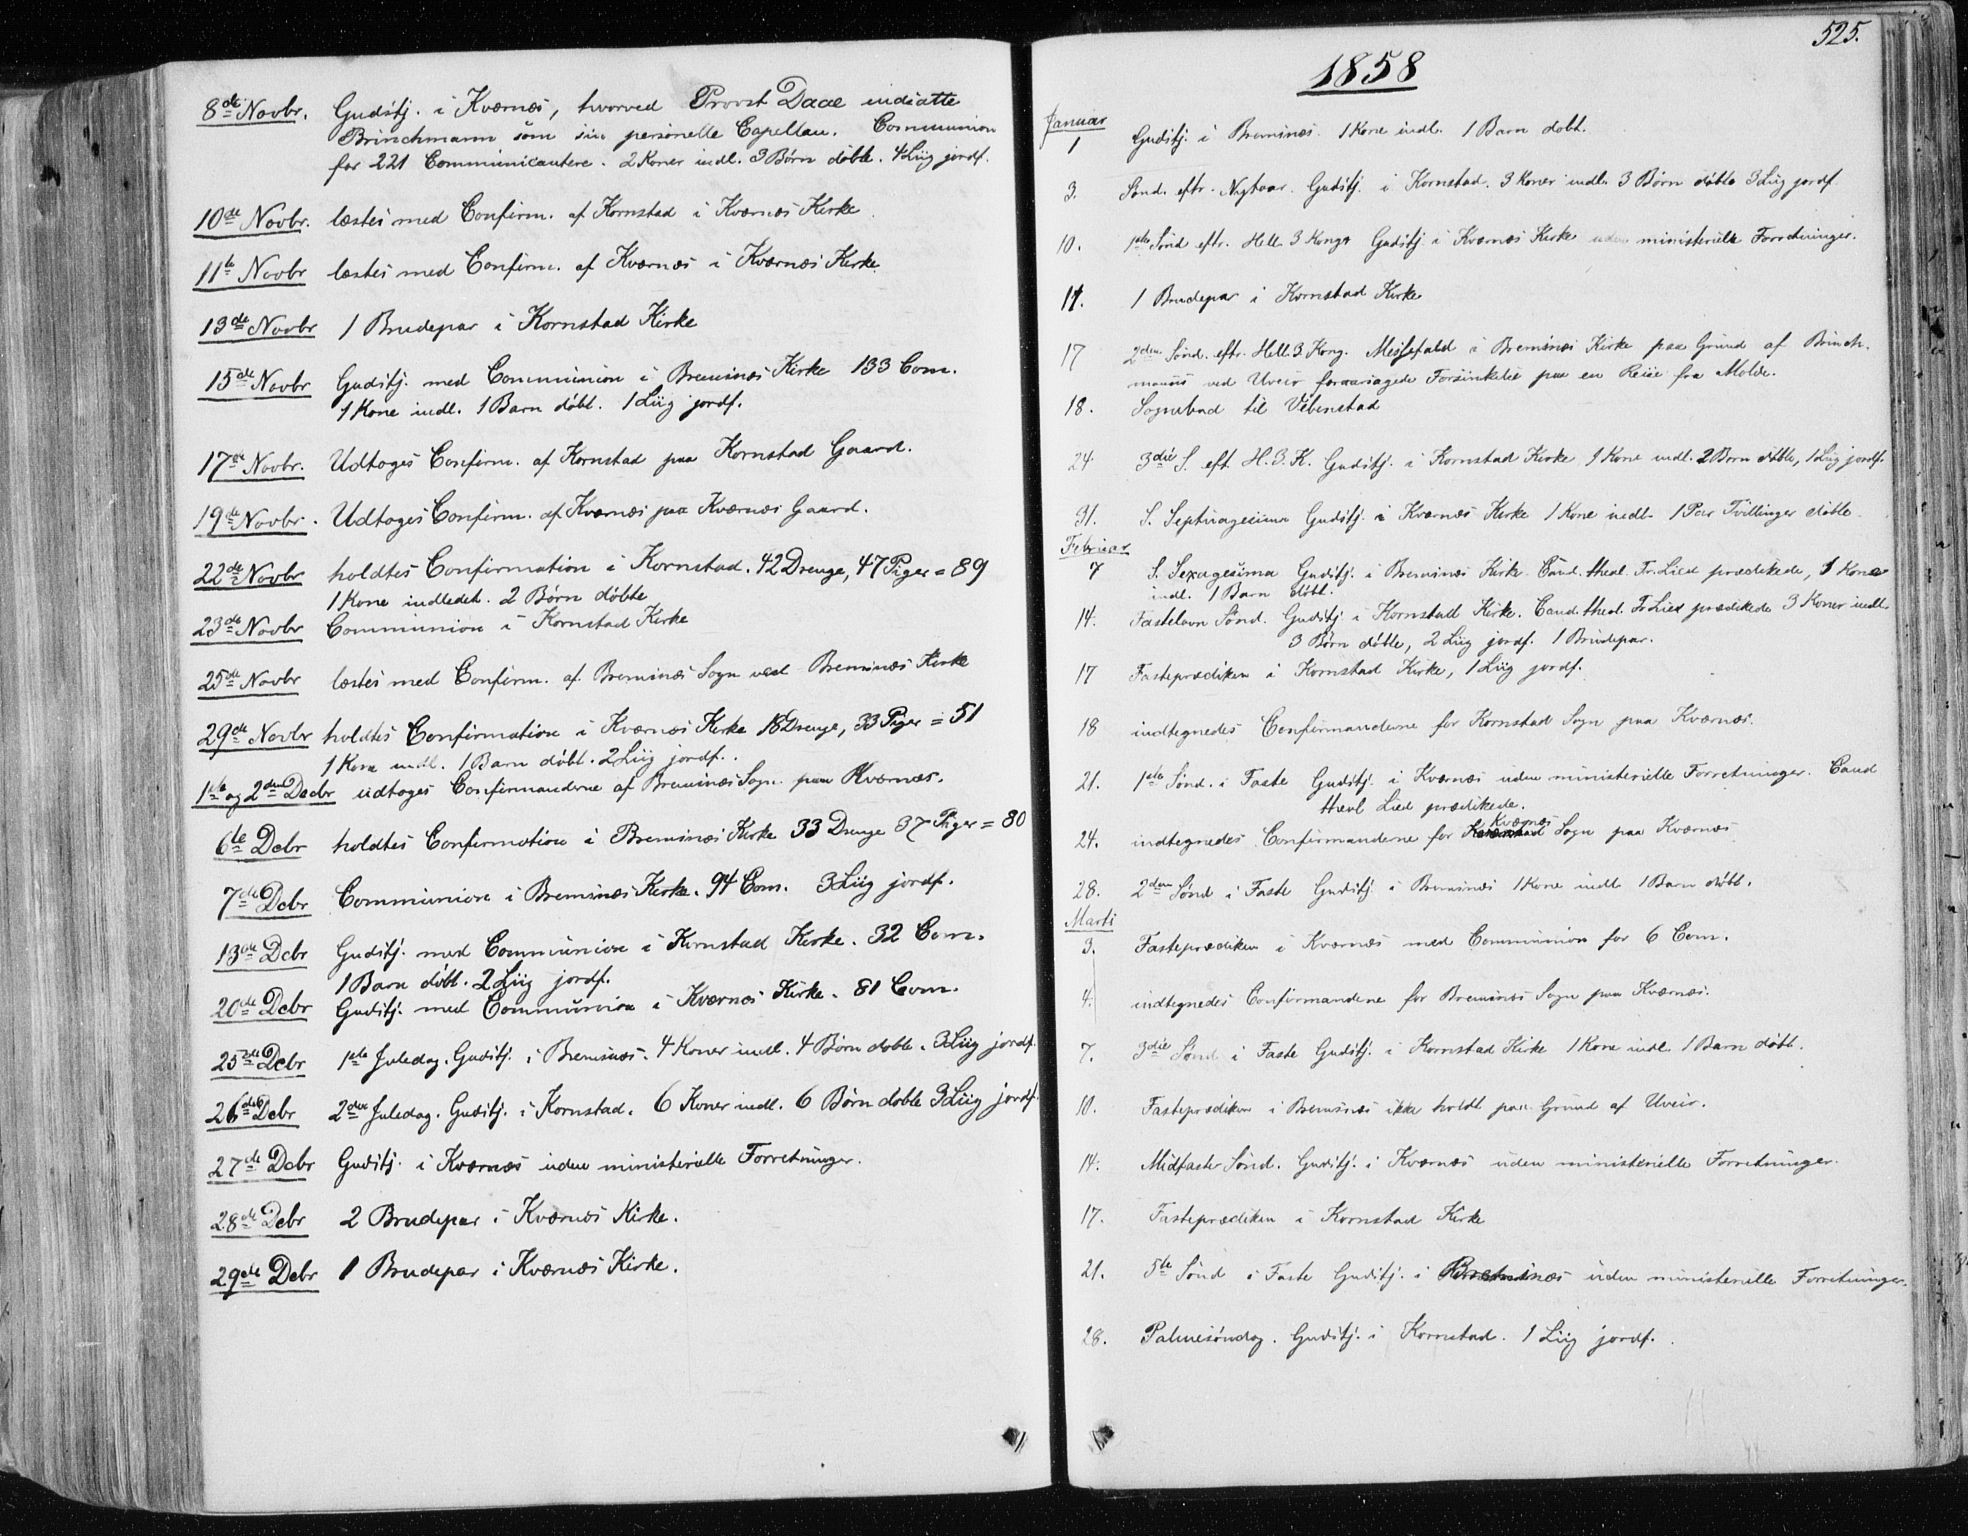 8de Novbr. Gudstj. i Kværnæs, hvorved Provst Daae indsatte
Brinchmann som sin personelle Capellan. Communion
for 221 Communicantere. 2 Koner indl. 3 Børn døbte. 4 Liig jordf.
10de Novbr. læstes med Confirm. af Kornstad i Kværnæs Kirke.
11te Novbr læstes med Confirm. af Kværnæs i Kværnæs Kirke
13de Novbr 1 Brudepar i Kornstad Kirke
15de Novbr Gudstj. med Communion i Bremsnæs Kirke 133 Com.
1 Kone indl. 1 Barn døbt. 1 Liig jordf.
17de Novbr. Udtoges Confirm. af Kornstad paa Kornstad Gaard.
19de Novbr. Udtoges Confirm. af Kværnæs paa Kværnæs Gaard.
22de Novbr holdtes Confirmation i Kornstad. 42 Drenge, 47 Piger = 89
1 Kone indledet. 2 Børn døbte
23de Novbr Communion i Kornstad Kirke
25de Novbr læstes med Confirm. af Bremsnæs Sogn ved Bremsnæs Kirke
29de Novbr holdtes Confirmation i Kværnæs Kirke 18 Drenge, 33 Piger = 51
1 Kone indl. 1 Barn døbt. 2 Liig jordf.
1ste og 2den Decbr udtoges Confirmanderne af Bremsnæs Sogn paa Kværnæs.
6te Dcbr holdtes Confirmation i Bremsnæs Kirke 33 Drenge 37 Piger = 80
7de Dcbr Communion i Bremsnæs Kirke. 94 Com. 3 Liig jordf.
13de Dcbr Gudstj. med Communion i Kornstad Kirke. 32 Com.
1 Barn døbt. 2 Liig jordf.
20de Dcbr Gudstj. med Communion i Kværnæs Kirke. 81 Com.
25de Dcbr 1ste Juledag. Gudstj. i Bremsnæs. 4 Koner indl. 4 Børn døbte. 3 Liig jordf.
26de Dcbr 2den Juledag. Gudstj. i Kornstad. 6 Koner indl. 6 Børn døbte 3 Liig jordf
27de Dcbr Gudstj. i Kværnæs uden ministerielle Forretninger.
28de Dcbr 2 Brudepar i Kværnæs Kirke.
29de Dcbr 1 Brudepar i Kværnæs Kirke.
525.
1858
Januar
1 Gudstj. i Bremsnæs. 1 Kone indl. 1 Barn døbt.
3. Sønd. eftr. Nytaar. Gudstj. i Kornstad. 3 Koner indl. 3 Børn døbte 3 Liig jordf.
10. 1ste Sønd eftr. Hell. 3 Konger Gudstj. i Kværnæs Kirke uden ministerielle Forretninger.
14. 1 Brudepar i Kornstad Kirke
17 2den Sønd. eftr. Hell. 3. Kong. Messefald i Bremsnæs Kirke paa Grund af Brinch-
manns ved Uveir foraarsagede Forsinkelse paa en Reise fra Molde.
18. Sognebud til Vebenstad
24. 3die S. eft. H. 3. K. Gudstj. i Kornstad Kirke 1 Kone indl. 2 Børn døbte, 1 Liig jordf.
31. S. Septuagesima Gudstj. i Kværnæs Kirke 1 Kone indl. 1 Par Tvillinger døbte.
Februar
7 S. Sexagesima Gudstj. i Bremsnæs Kirke. Cand. theol. Fr. Lied prædikede, 1 Kone
indl. 1 Barn døbt.
14. Fastelavn Sønd. Gudstj. i Kornstad Kirke. Cand. theol. Fr Lied prædikede 3 Koner indl.
3 Børn døbte, 2 Liig jordf. 1 Brudepar.
17 Fasteprædiken i Kornstad Kirke, 1 Liig jordf.
18 indtegnedes Confirmanderne for Kornstad Sogn paa Kværnæs.
21. 1ste Sønd. i Faste Gudstj. i Kværnæs uden ministerielle Forretninger. Cand
theol Lied prædikede.
Kværnæs
24. indtegnedes Confirmanderne for Kornstad Sogn paa Kværnæs
28. 2den Sønd i Faste Gudstj. i Bremsnæs 1 Kone indl. 1 Barn døbt.
Marti
3. Fasteprædiken i Kværnæs med Communion for 6 Com.
4. indtegnedes Confirmanderne for Bremsnæs Sogn paa Kværnæs.
7. 3die Sønd i Faste Gudstj. i Kornstad Kirke 1 Kone indl. 1 Barn døbt.
10. Fasteprædiken i Bremsnæs ikke holdt paa Grund af Uveir.
14. Midfaste Sønd. Gudstj. i Kværnæs uden ministerielle Forretninger.
17. Fasteprædiken i Kornstad Kirke
21. 5te Sønd i Faste Gudstj. i Bremsnæs uden ministerielle Forretninger.
28. Palmesøndag. Gudstj. i Kornstad. 1 Liig jordf.